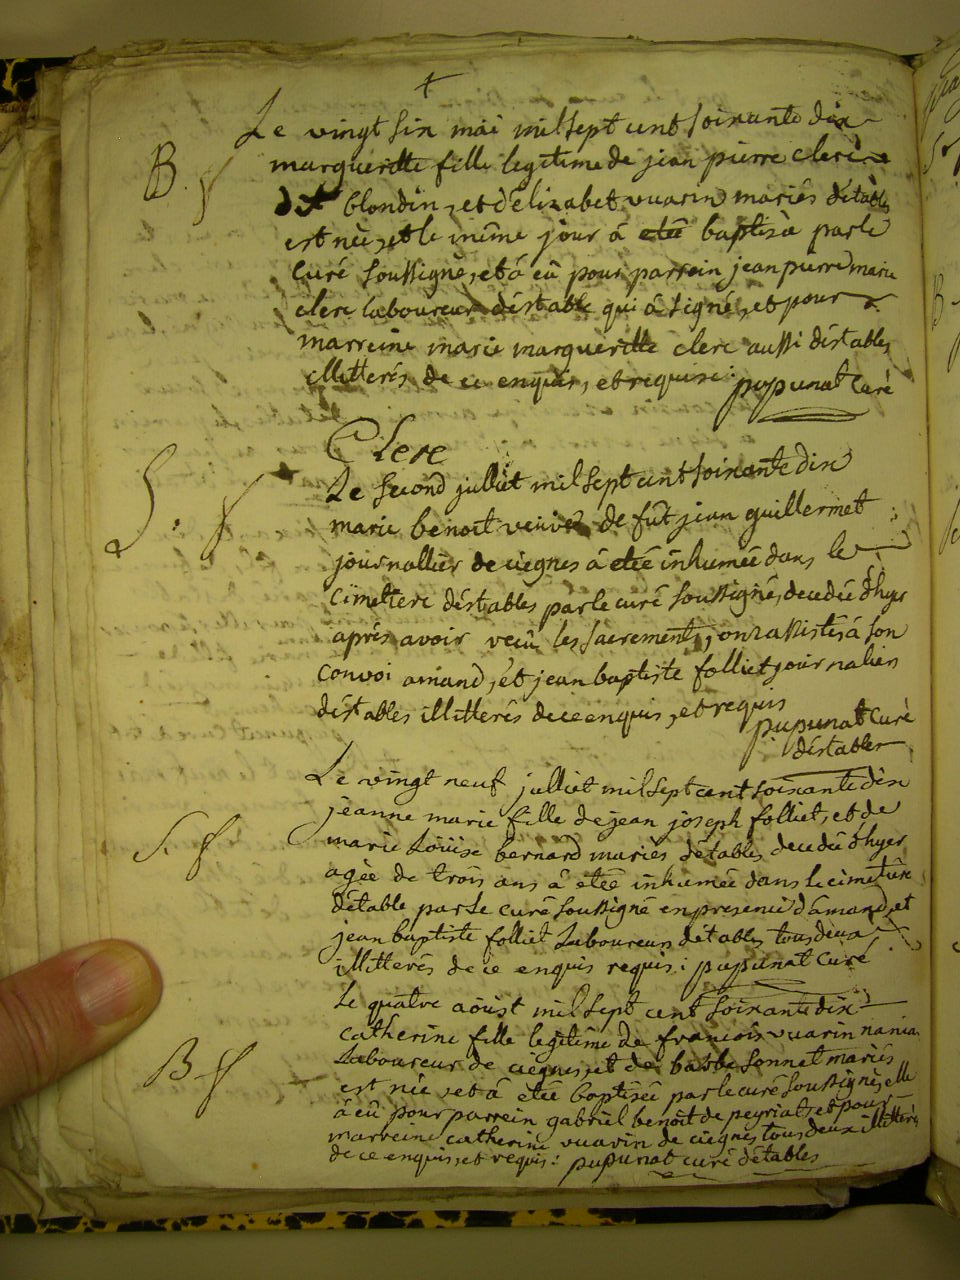 Le vingt six mai mil sept cent soixante dix
B. f
margueritte fille legitime de jean pierre clerc
dit blondin, et d'élizabet vuarin mariés détables
est née, et le même jour à etée baptisà par le
Curé soussigné, et à eû pour parrein jean pierre marie
clerc laboureur déstable qui à signé, et pour
marreine marie margueritte clerc aussi déstables
illitterés de ce enquis, et requise: pupunat Curé
Clerc
Le second julliet mil sept cent soixante dix
S. f
marie benoit veuve de fût jean guillermet
journallier de ciegnes à etée inhumée dans le
cimetiere déstables par le curé soussigné, decedée d'hyer
aprés avoir reçû les sacrements, ont assistés à son
convoi amand, et jean baptiste folliet journaliers
déstables illitterés de ce enquis, et requis
pupunat Curé
déstables
Le vingt neuf julliet mil sept cent soixante dix
jeanne marie fille de jean joseph folliet, et de
S. f
marie Loüise bernard mariés détables decedée d'hyer
agée de trois ans à etée inhumée dans le cimetiere
détable par le curé soussigné en presence d'amand, et
jean baptiste folliet Laboureurs détables tous deux
illitterés de ce enquis requis: pupunat Curé
Le quatre aoüst mil sept cent soixante dix
catherine fille legitime de francois vuarin
B f
Laboureur de ciegnes, et de barbe sonnet mariés
est née, et à etée baptisée par le curé soussigné, elle
à eû pour parrein gabriel benoit de peyriat, et pour
marreine catherine vuarin de ciegnes tous deux illitterés
de ce enquis, et requis: pupunat curé détables